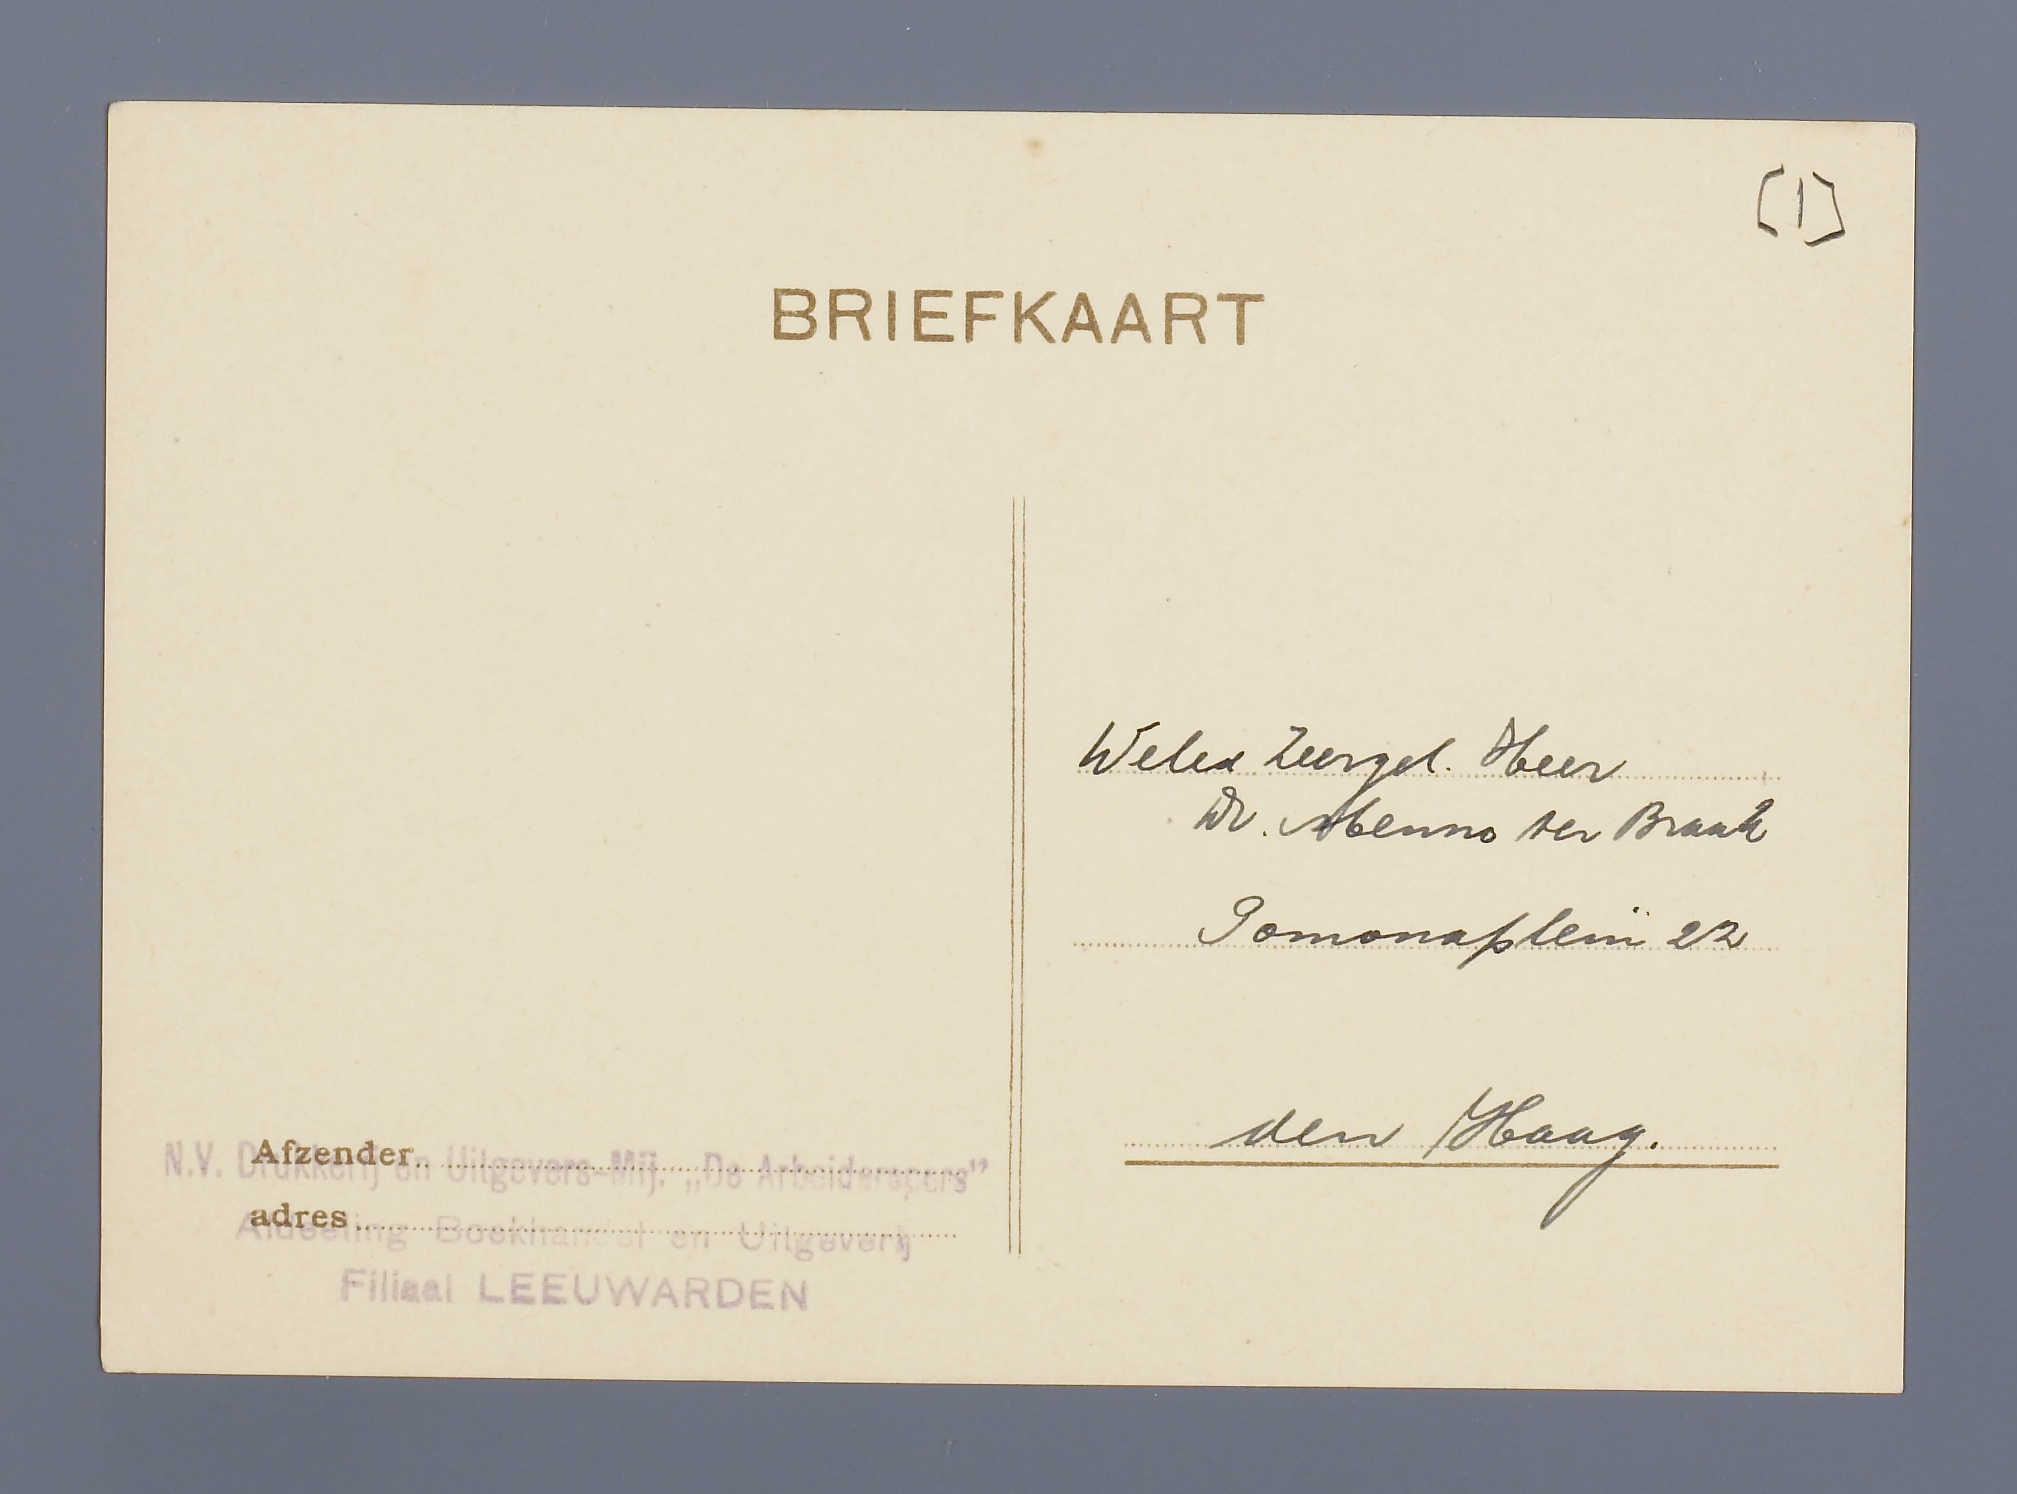 [1]
BRIEFKAART
Weled. Zeergel. Heer
Dr. Menno ter Braak
Pomonaplein 22
den Haag.
Afzender
N.V. Drukkerij en Uitgevers-Mij. „De Arbeiderspers"
adres
Afdeeling Boekhandel en Uitgeverij
Filiaal LEEUWARDEN